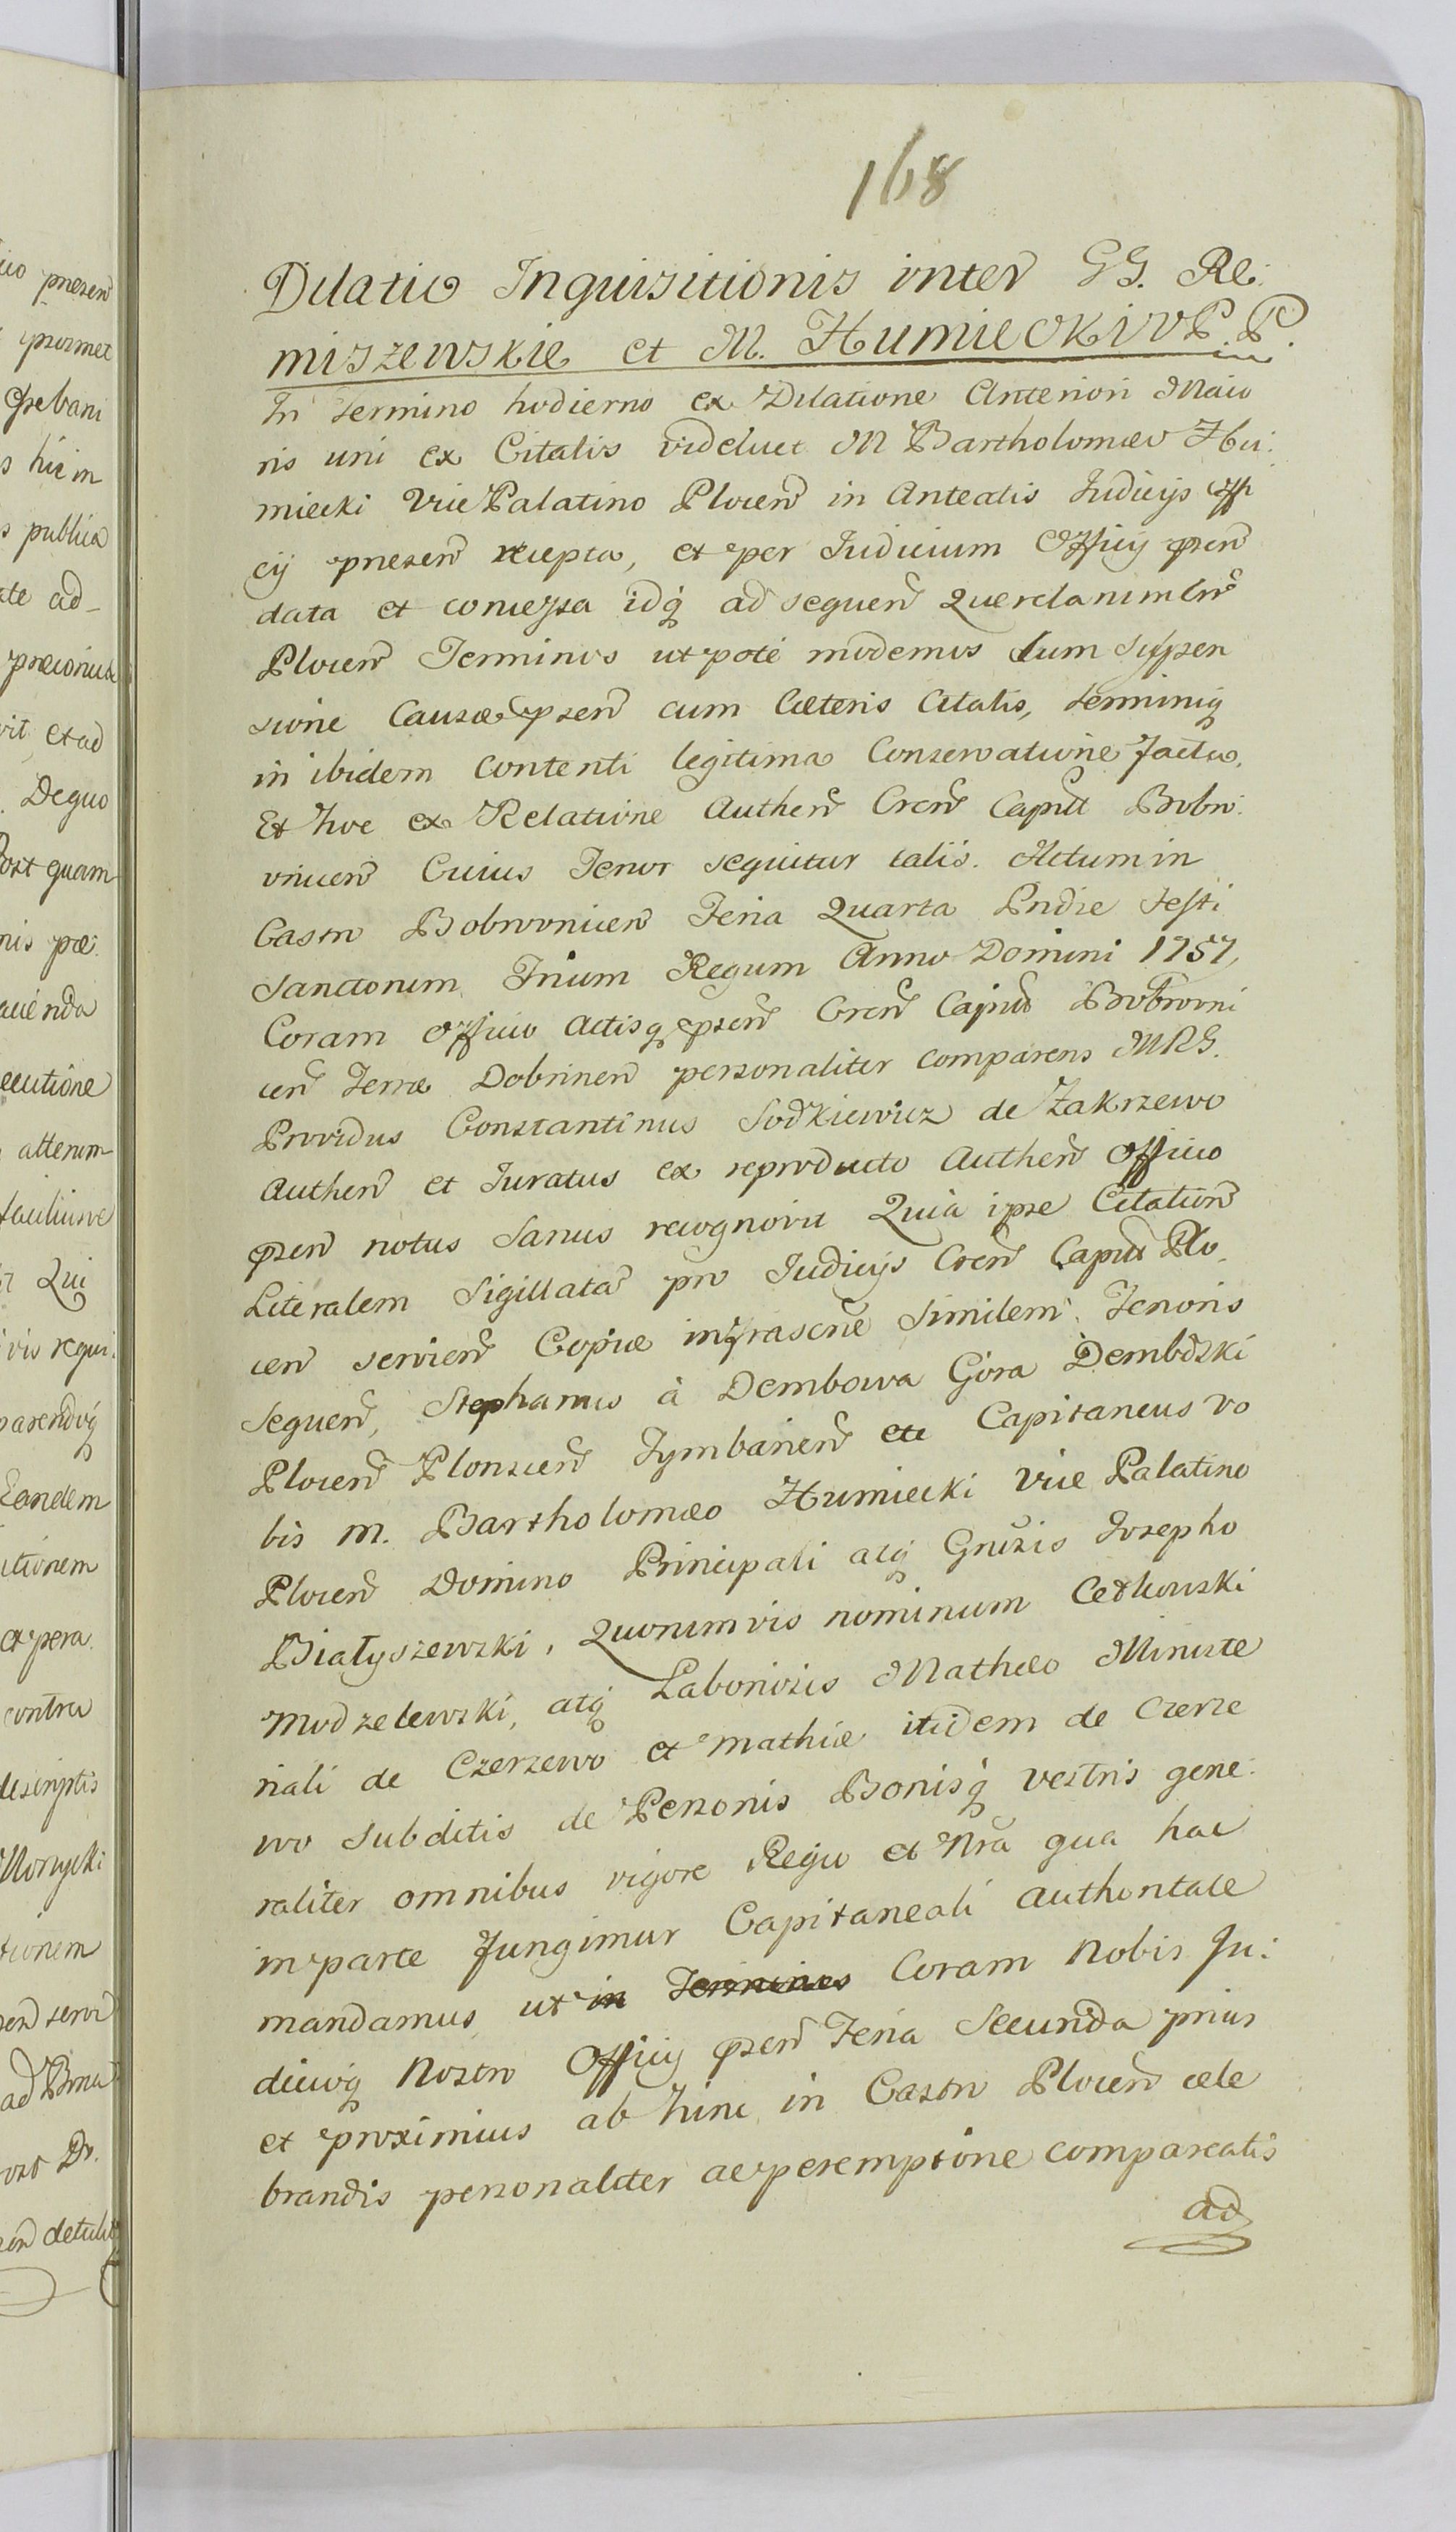 168
Dilatio Inquisitionis inter GG. Re:
miszewskie et M. Humiecki VP. P.
In Termino hodierno ex Dilatione Anteriori Maio
ris uni ex Citatis videlicet M Bartholomæo Hu:
miecki Vice Palatino Plocen in Anteatis Judicijs Offi
cij presen recepta, et per Judicium Officij psen
data et concessa idq ad sequen Querelarum
Plocen Terminos utpote modernos cum suspen
sione Causæ psen cum Cæteris Citatis, terminiq
in ibidem contenti legitima Conservatione facta.
Et hoc ex Relatione Authen Cren Capitt Bobro:
vnicen Cuius Tenor sequitur talis. Actum in
Castro Bobrovnicen Feria Quarta Pridie festi
Sanctorum Trium Regum Anno Domini 1757,
Coram Officio Actisq psen Cren Capitt Bobrovni
cen Terræ Dobrinen personaliter comparens MRG.
Providus Constantinus Sodkiewicz de Zakrzewo
Authen et Juratus ex reproducto Authen Officio
psen notus Sanus recognovit Quia ipse Citation
Literalem Sigillatã pro Judicijs Cren Capitt Plo
cen servien Copiæ infrascrie Similem Tenoris
sequen, Stephanus à Dembowa Góra Dembszki
Plocen Plonscen Tymbarien etc Capitaneus vo
bis M. Bartholomæo Humiecki Vice Palatino
Plocen Domino Principali atq Grusis Josepho
Białyszewski, Quorumvis nominum Cetkowski
Modzelewski, atq Laboriosis Mathæo Ministe
riali de Czerzewo et Mathiæ itidem de Czerze
wo subditis de Personis Bonisq vestris gene:
raliter omnibus vigore Regia et Nrã qua hac
in parte fungimur Capitaneali Authoritate
mandamus, ut in Terminis Coram Nobis Ju:
dicioq Nostro Officij psen Feria Secunda prius
et proximius ab hinc in Castro Plocen cele
brandis personaliter ac peremptorie compareatis
ad